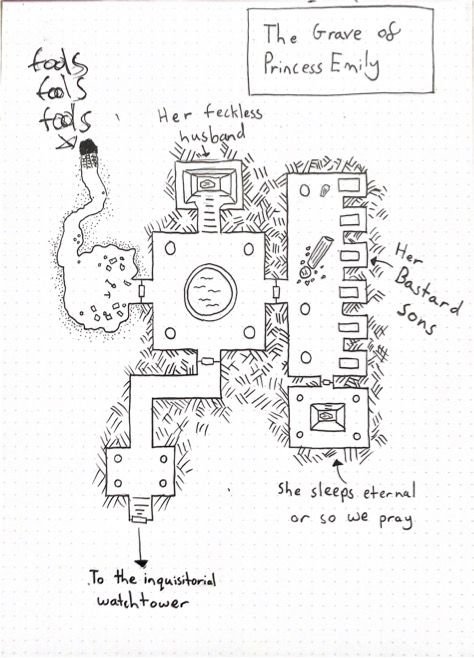 The Grave of
Princess Emily
fools
fools
fools
Her feckless
husband
Her
Bastard
sons
She sleeps eternal
or so we pray
To the inquisitorial
watchtower